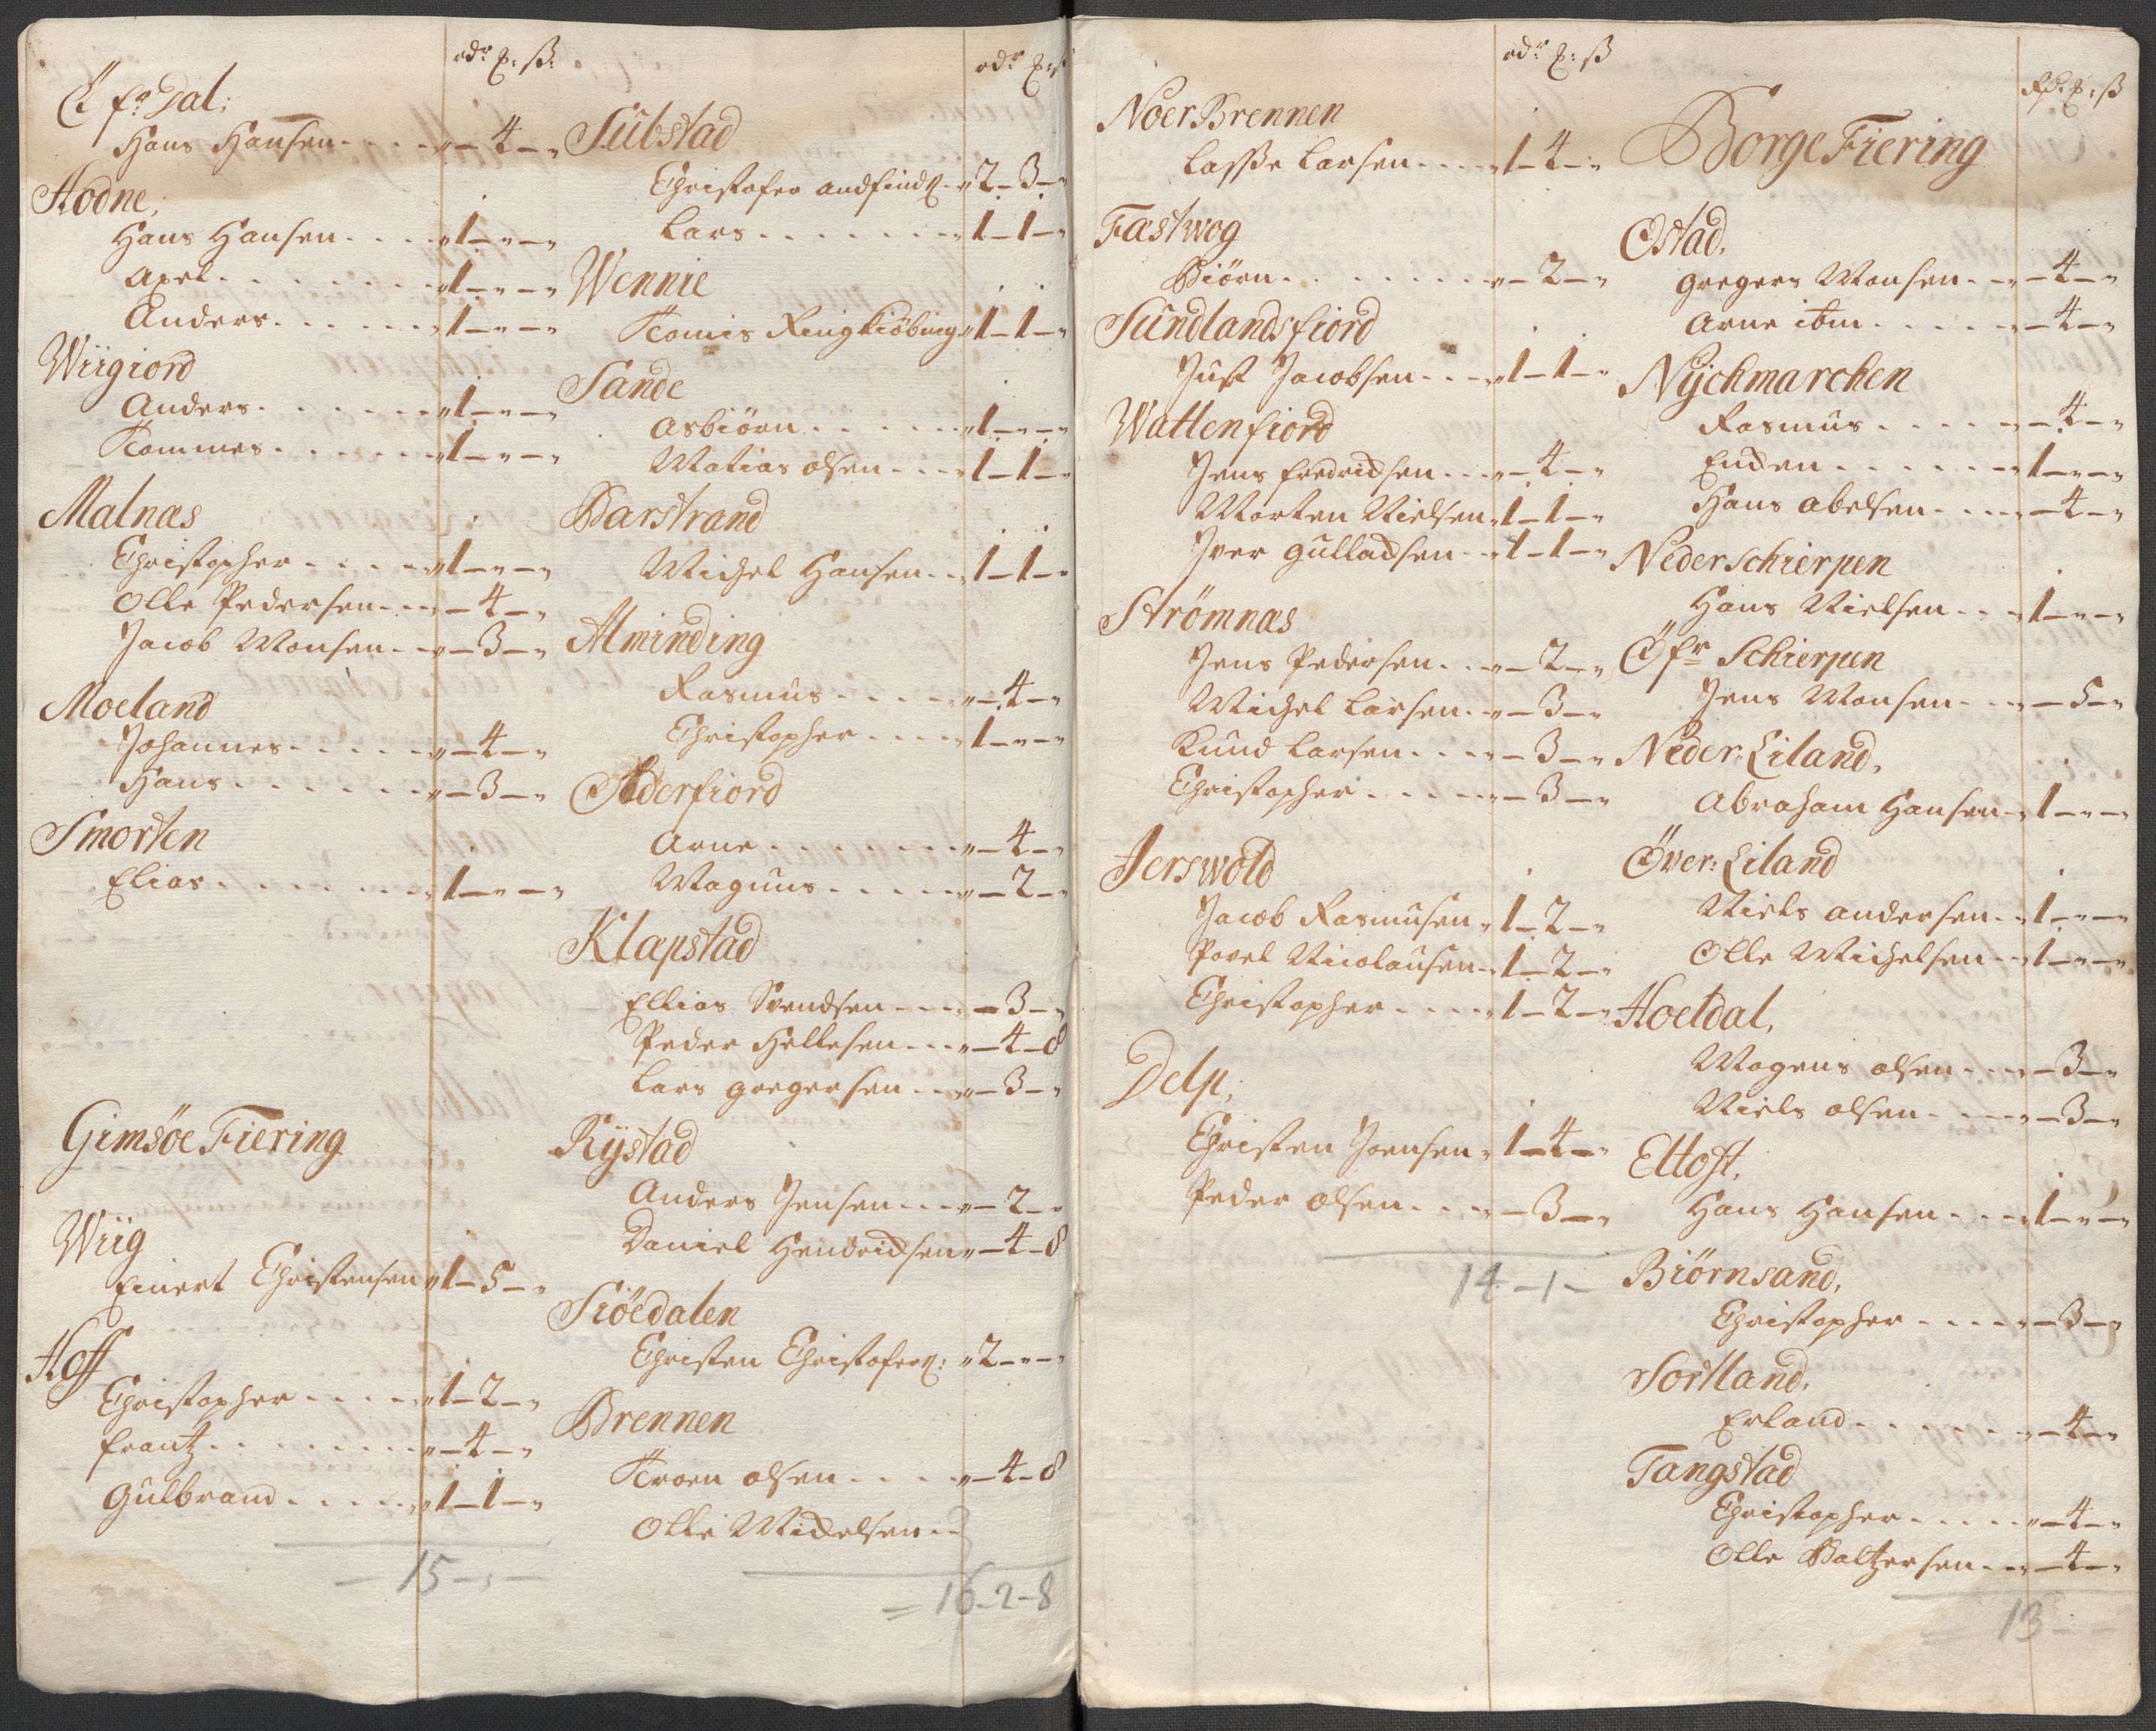 Öfr Dal:
Hans Hansen - - - - „ – 4 – „
Hodne,
Hans Hansen - - - - „ 1 – „ – „
Axel - - - - - - „ 1 – „ – „
Anders - - - - - - „ 1 – „ – „
Wiigiord
Anders - - - - - - „ 1 – „ – „
Hommes - - - - - - „ 1 – „ – „
Malnæs
Christopher - - - - „ 1 – „ – „
Olle Pedersen - - - „ – 4 – „
Jacob Monsen - - „ – 3 – „
Moeland
Johannes - - - - - „ – 4 – „
Hans - - - - - - „ – 3 – „
Smorten
Elias - - - - - - „ 1 – „ – „
Gimsöe Fiering
Wiig
Einert Christensen „ 1 – 5 – „
Hoff
Christopher - - - - „ 1 – 2 – „
Frantz - - - - - - „ – 4 – „
Gulbrand - - - - - „ 1 – 1 – „
– 15 – „ –
odr ß:
Sulstad
Christofer Andfinds: „ 2 – 3 – „
Lars - - - - - - - „ 1 – 1 – „
Wennie
Ringkiöbing „ 1 – 1 – „
Sande
Asbiörn - - - - - „ 1 – „ – „
Matias Olsen - - - „ 1 – 1 – „
Barstrand
Michel Hansen - - „ 1 – 1 – „
Alminding
Rasmus - - - - - „ – 4 – „
Christopher - - - - „ 1 – „ – „
Olderfiord
Arne - - - - - - - „ – 4 – „
Magnus - - - - - „ – 2 – „
Klapstad
Ellias Svendsen - - - „ – 3 – „
Peder Hellesen - - - „ – 4 – 8
Lars Gregersen - - „ – 3 – „
Rÿstad
Anders Jensen - - - „ – 2 – „
Daniel Hendricksen „ – 4 – 8
Siöedalen
Christen Christofers: „ 2 – „ – „
Brennen
Olsen - - - - „ – 4 – 8
Olle Mickelsen - -
= 16 – 2 – 8
odr ß
Noer Brennen
Lasse Larsen - - - - „ 1 – 4 – „
Fastwog
Biörn - - - - - - - „ – 2 – „
Sundlandsfiord
Just Jacobsen - - - „ 1 – 1 – „
Wattenfiord
Jens Fredricksen - - - „ – 4 – „
Morten Nielsen „ 1 – 1 – „
Iver Gulladsen - - „ 1 – 1 – „
Strömnæs
Jens Pedersen - - - „ – 2 – „
Michel Larsen - - „ – 3 – „
Knud Larsen - - - „ – 3 – „
Christopher - - - - - „ – 3 – „
Jerswold
Jacob Rasmusen „ 1 – 2 – „
Povel Nicolausen - „ 1 – 2 – „
Christopher - - - - „ 1 – 2 – „
Delp,
Christen Joensen „ 1 – 4 – „
Peder Olsen - - - - „ – 3 – „
14 – 1 –
Borge Fiering
Ostad,
Gregers Monsen - - „ – 4 – „
Arne ibm - - - - - „ – 4 – „
Nÿckmarcken
Rasmus - - - - - „ – 4 – „
Enden - - - - - - „ 1 – „ – „
Hans Abelsen - - - - „ – 4 – „
Nederschierpen
Hans Nielsen - - - „ 1 – „ – „
Öfr Schierpen
Jens Monsen - - - „ – 5 – „
Neder Eiland,
Abraham Hansen - „ 1 – „ – „
Över: Eiland
Niels Andersen - - „ 1 – „ – „
Olle Michelsen - - „ 1 – „ – „
Hoeldal,
Mogens Olsen - - - „ – 3 – „
Niels Olsen - - - - „ – 3 – „
Eltoft,
Hans Hansen - - - „ 1 – „ – „
Biörnsand,
Christopher - - - - „ – 3 – „
Sortland,
Erland - - - - - - „ – 4 – „
Tangstad
Christopher - - - - - „ – 4 – „
Olle Baltzersen - - „ – 4 – „
13 – –